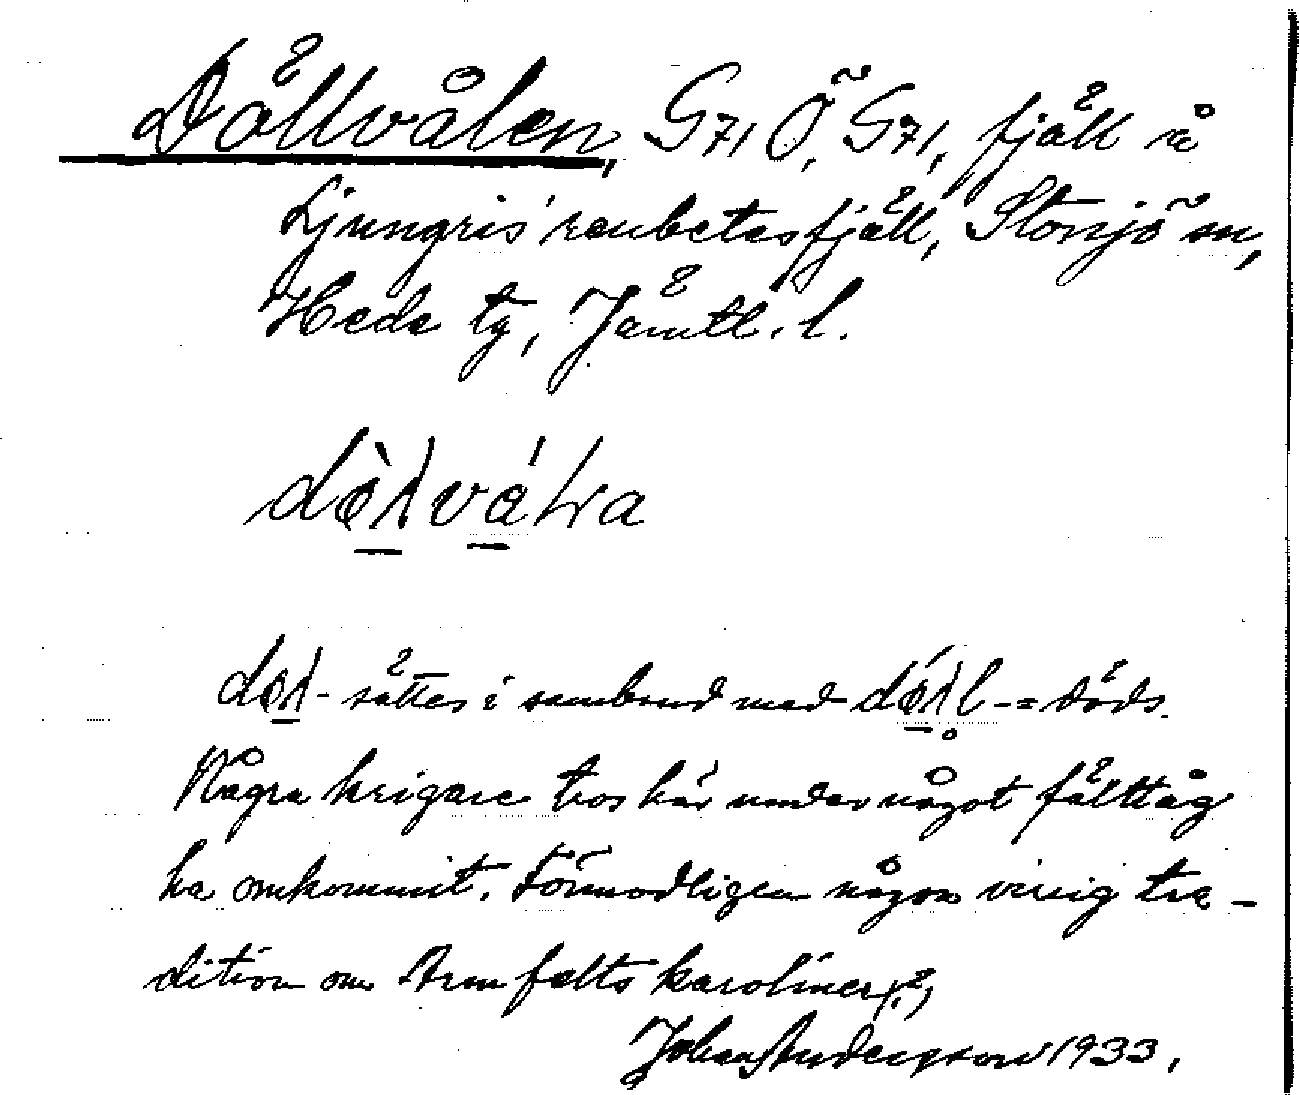 Dållvålen, G71 Ö, G71, fjäll å
Ljungris' renbetesfjäll, Storsjö sn,
Hede tg, Jämtl. l.
sättes i samband med = döds.
Några krigare tros här under något fälttåg
ha omkommit. Förmodligen någon vissig tra-
dition om Armfelts karoliner (?)
Johan Andersson 1933.